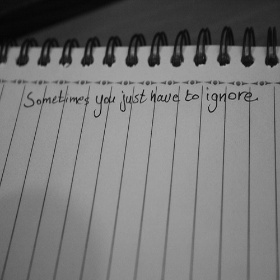 Sometimes you just have to ignore.